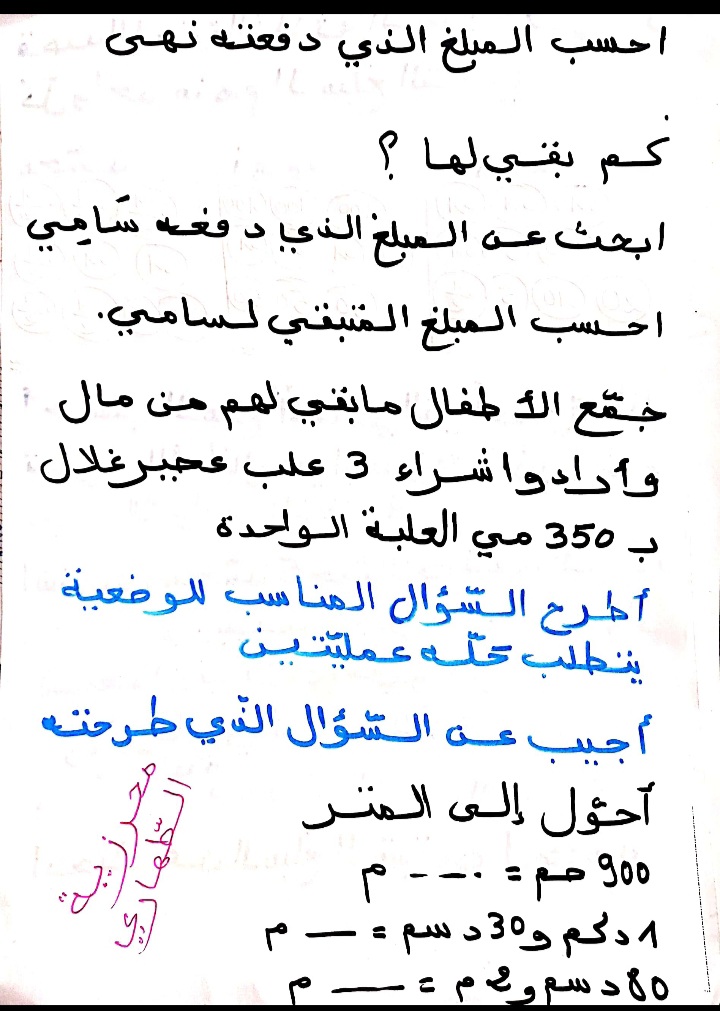 احسب المبلغ الذي دفعته نهى
كم بقي لها ؟
ابحث عن المبلغ الذي دفعه سَامِي
احسب المبلغ المتبقي لسامي.
جمّع الأطفال ما بقي لهم من مال
وأرادوا شراء 3 علب عصير غلال
ب 350 مي العلبة الواحدة
أطرح السّؤال المناسب للوضعية
يتطلب حلّه عمليّتين
أجيب عن السّؤال الّذي طرحته
أحوّل إلى المتر
900 صم = ---- م
1 دكم و 30 دسم = — م
80 دسم و 2 م = —— م
محرزية
الطّهاري